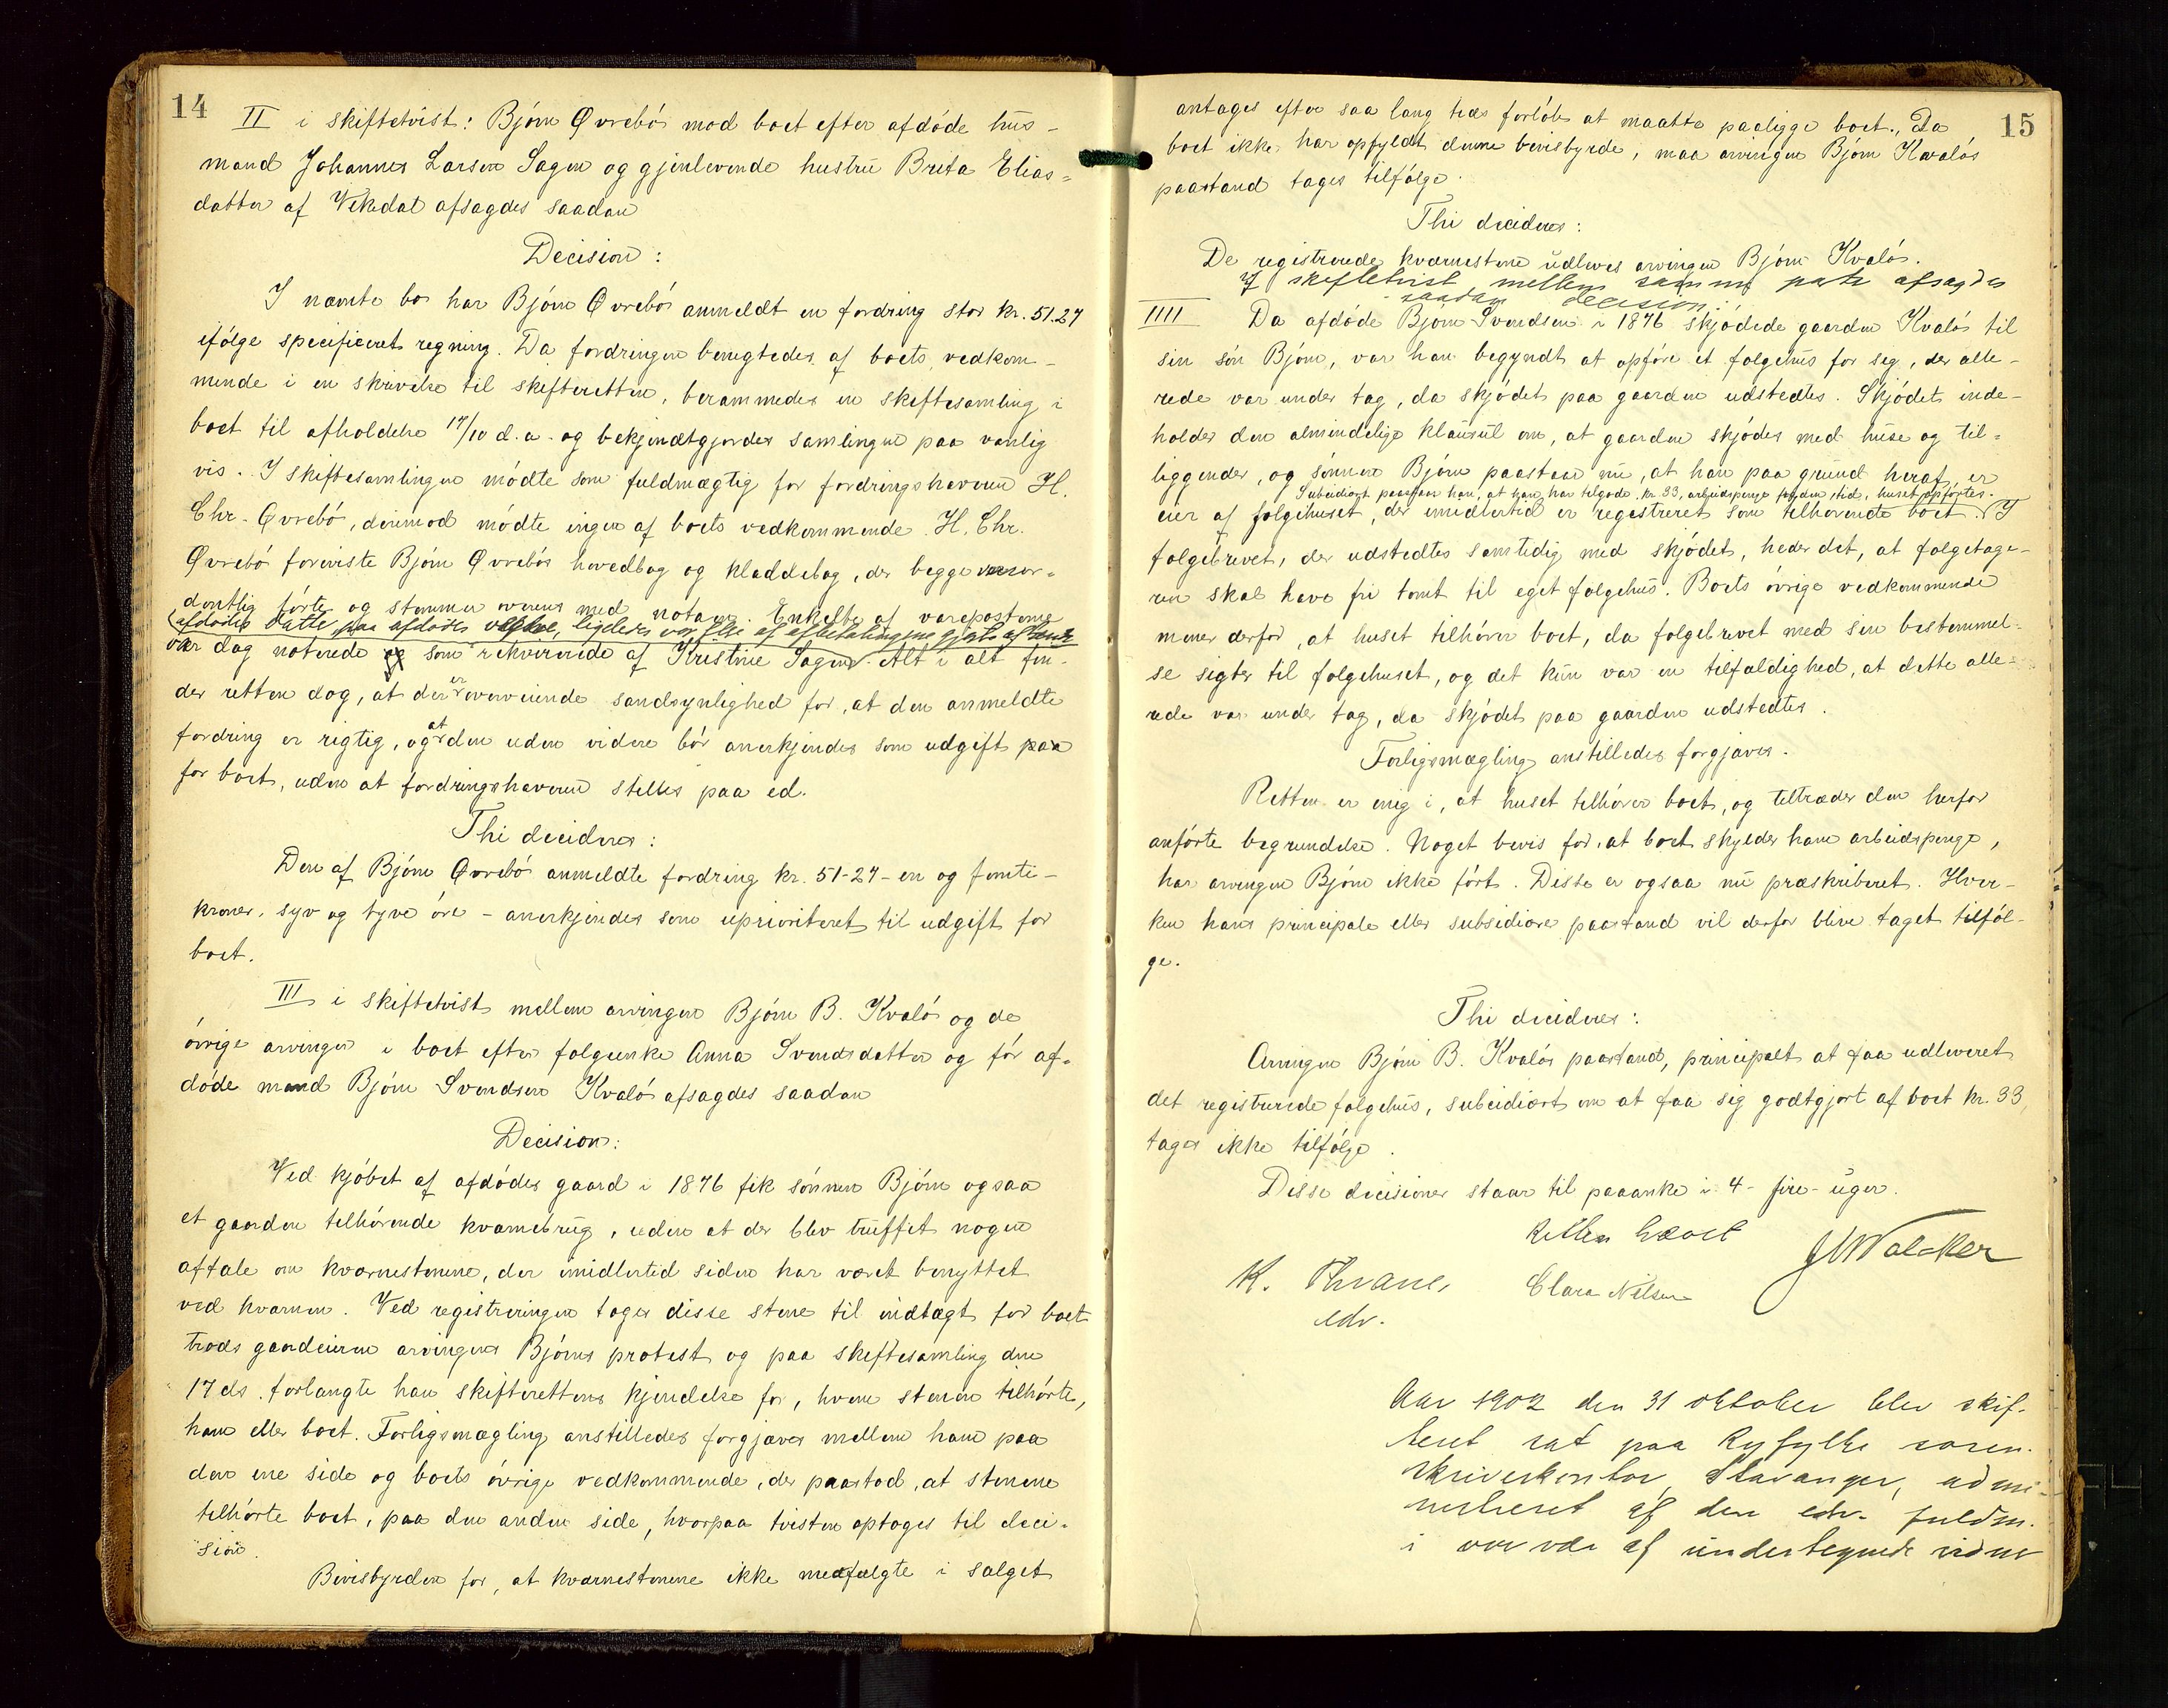 14
II i skiftetvist: Bjørn Øvrebø mod boet efter afdøde hus-
mand Johannes Larsen Sagen og gjenlevende hustru Brita Elias-
datter af Vikedal afsagdes saadan
Decision:
I nævnte bo har Bjørn Øvrebø anmeldt en fordring stor kr. 51.27
ifølge specificeret regning. Da fordringen benegtedes af boets vedkom-
mende i en skrivelse til skifteretten, berammedes en skiftesamling i
boet til afholdelse 17/10 d.a. og bekjendtgjordes samlingen paa vanlig
vis. I skiftesamlingen mødte som fuldmægtig for fordringshaveren H.
Chr. Øvrebø, derimod mødte ingen af boets vedkommende. H. Chr.
Øvrebø foreviste Bjørn Øvrebøs hovedbog og kladdebog, der begge var or-
dentlig førte og stemmer overens med notaen. Enkelte af vareposterne
afdødes datter paa afdødes vegne, ligeledes var flere af afbetalingerne gjorte af
hver dag noterede som rekvirerede af Kristine Sagen. Alt i alt fin-
der retten dog, at der er overveiende sandsynlighed for, at den anmeldte
fordring er rigtig, og at den uden videre bør anerkjendes som udgift paa
for boet, uden at fordringshaveren stilles paa ed.
Thi decideres:
Den af Bjørn Øvrebø anmeldte fordring kr. 51-27 - en og femti-
kroner, syv og tyve øre - anerkjendes som uprioriteret til udgift for
boet.
III i skiftetvist mellem arvingen Bjørn B. Kvaløs og de
øvrige arvinger i boet efter folgeenke Anna Svendsdatter og før af-
døde mand Bjørn Svendsen Kvaløs afsagdes saadan
Decision:
Ved kjøbet af afdødes gaard i 1876 fik sønnen Bjørn ogsaa
et gaarden tilhørende kvernebrug, uden at der blev truffet nogen
aftale om kvernestenene, der imidlertid siden har været benyttet
ved kvernen. Ved registreringen toges disse stene til indtægt for boet
trods gaardeieren arvingen Bjørns protest og paa skiftesamling den
17 ds. forlangte han skifterettens kjendelse for, hvem stenene tilhørte,
ham eller boet. Forligsmægling anstilledes forgjæves mellem ham paa
den ene side og boets øvrige vedkommende, der paastod, at stenene
tilhørte boet, paa den anden side, hvorpaa tvisten optoges til deci-
sion.
Bevisbyrden for, at kvernestenene ikke medfulgte i salget
15
antages efter saa lang tids forløb at maatte paaligge boet. Da
boet ikke har opfyldt denne bevisbyrde, maa arvingen Bjørn Kvaløs
paastand tages tilfølge.
Thi decideres:
De registrerede kvernestene udleveres arvingen Bjørn Kvaløs.
I skiftetvist mellem samme parter afsagdes
saadan decision:
IIII Da afdøde Bjørn Svendsen i 1876 skjødede gaarden Kvaløs til
sin søn Bjørn, var han begyndt at opføre et folgehus for seg, der alle-
rede var under tag, da skjødet paa gaarden udstedtes. Skjødet inde-
holder den almindelige klausul om, at gaarden skjødes med huse og til-
liggender, og sønnen Bjørn paastaar nu, at han paa grund heraf er
Subsidiært paastaar han, at han har tilgode kr 33, arbeidspenge fra den tid, huset opførtes.
eier af folgehuset, der imidlertid er registreret som tilhørende boet. I
folgebrevet, der udstedtes samtidig med skjødet, heder det, at folgetage-
ren skal have fri tomt til eget folgehus. Boets øvrige vedkommende
mener derfor, at huset tilhører boet, da folgebrevet med sin bestemmel-
se sigter til folgehuset, og det kun var en tilfældighed, at dette alle-
rede var under tag, da skjødet paa gaarden udstedtes.
Forligsmægling anstilledes forgjæves.
Retten er enig i, at huset tilhører boet, og tiltræder den herfor
anførte begrundelse. Noget bevis for, at boet skylder ham arbeidspenge,
har arvingen Bjørn ikke ført. Disse er ogsaa nu præskriberet. Hver-
ken hans principale eller subsidiære paastand vil derfor blive taget tilføl-
ge.
Thi decideres:
Arvingen Bjørn B. Kvaløs paastand, principalt at faa udleveret
det registrerede folgehus, subsidiært om at faa sig godtgjort af boet kr. 33,
tages ikke tilfølge.
Disse decisioner staar til paaanke i 4 - fire - uger.
Retten hævet
K. Thrane,
edv.
Clara Nilsen
Aar 1902 den 31 oktober blev skif-
teret sat paa Ryfylke soren-
skriverkontor, Stavanger, admi-
nistreret af den edv. fuldm.
i overvær af undertegnede vidner